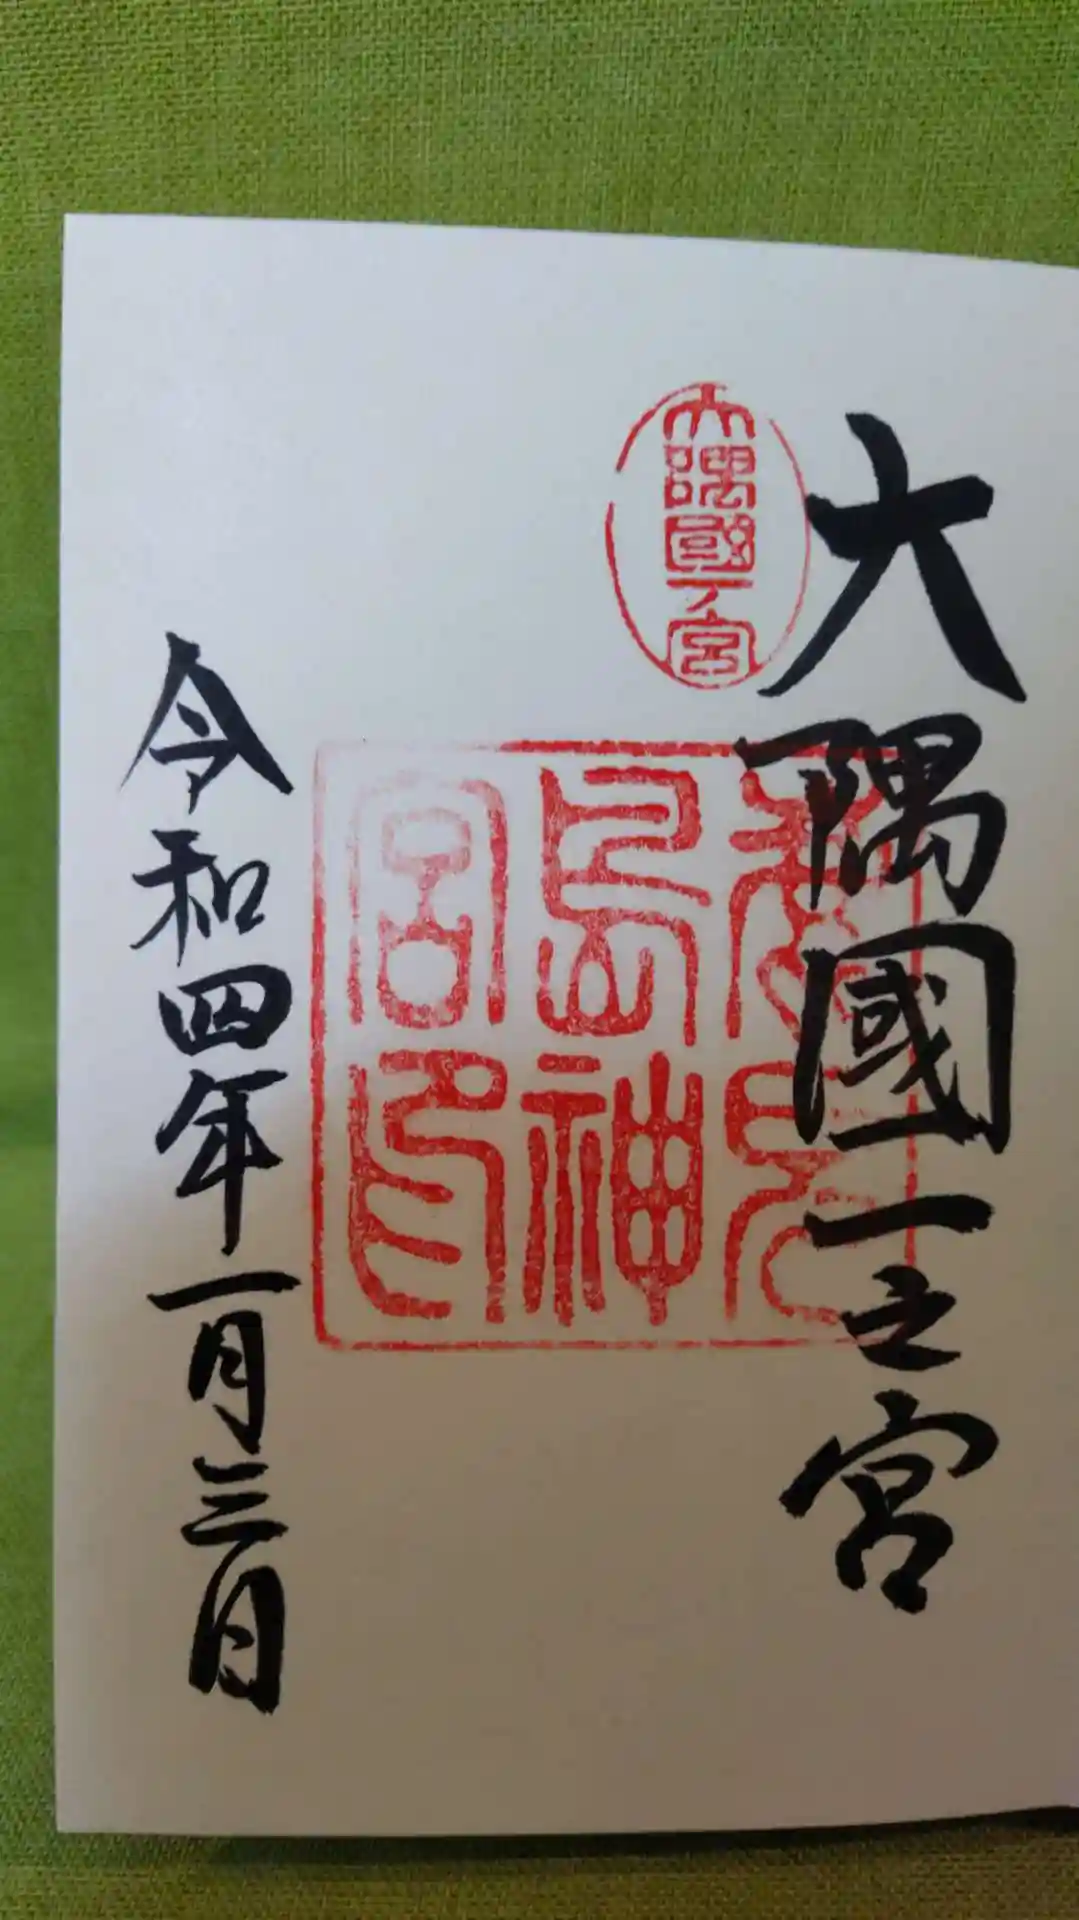 大隅國一之宮
大隅國一宮
鹿児
島神
宮印
令和四年一月三日